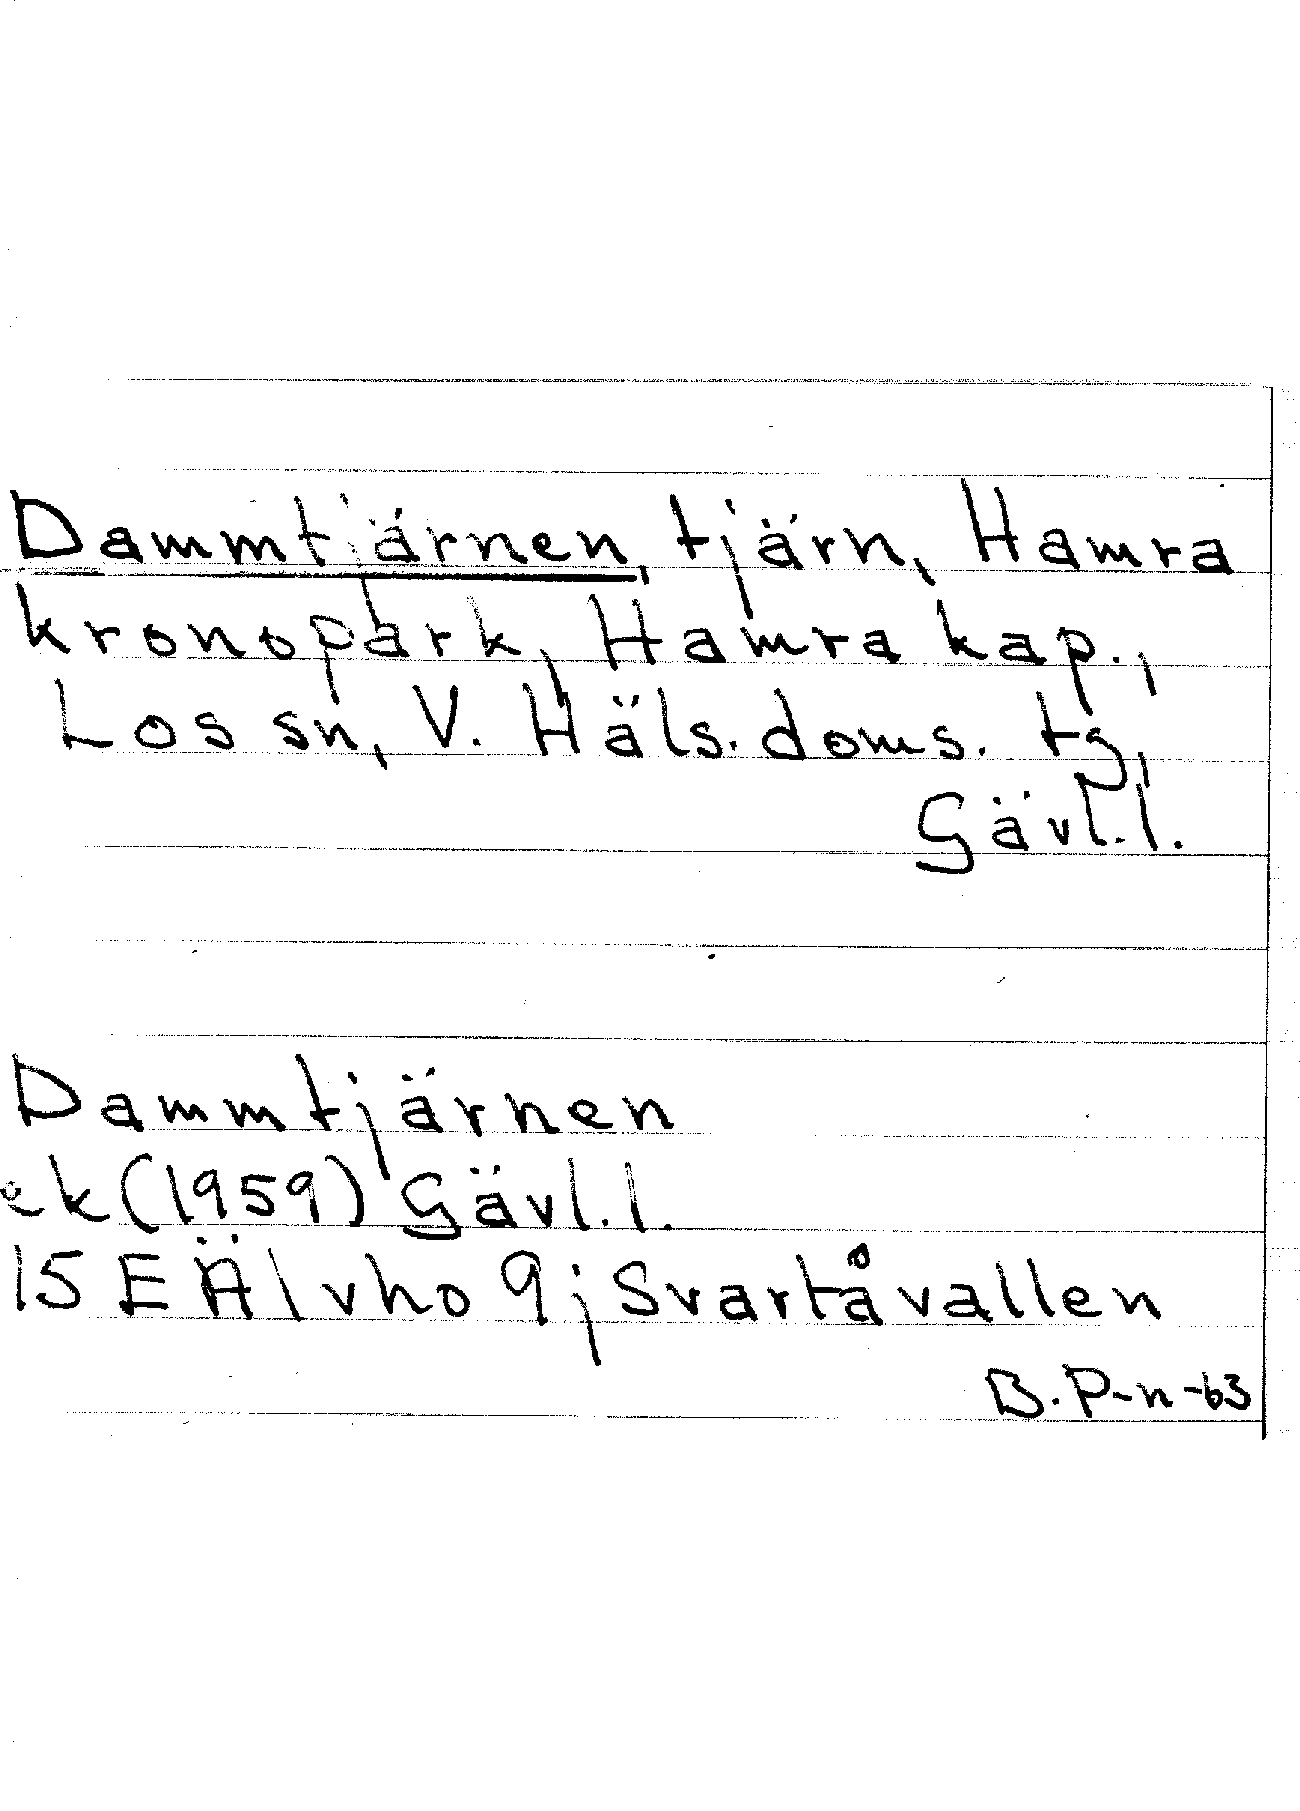 Dammtjärnen, tjärn, Hamra
kronopark, Hamra kap.,
Los sn, V. Häls. doms. tg,
Gävl. l.
Dammtjärnen
ek (1959) Gävl. l.
15 E Älvho 9j Svartåvallen
B. P-n -63